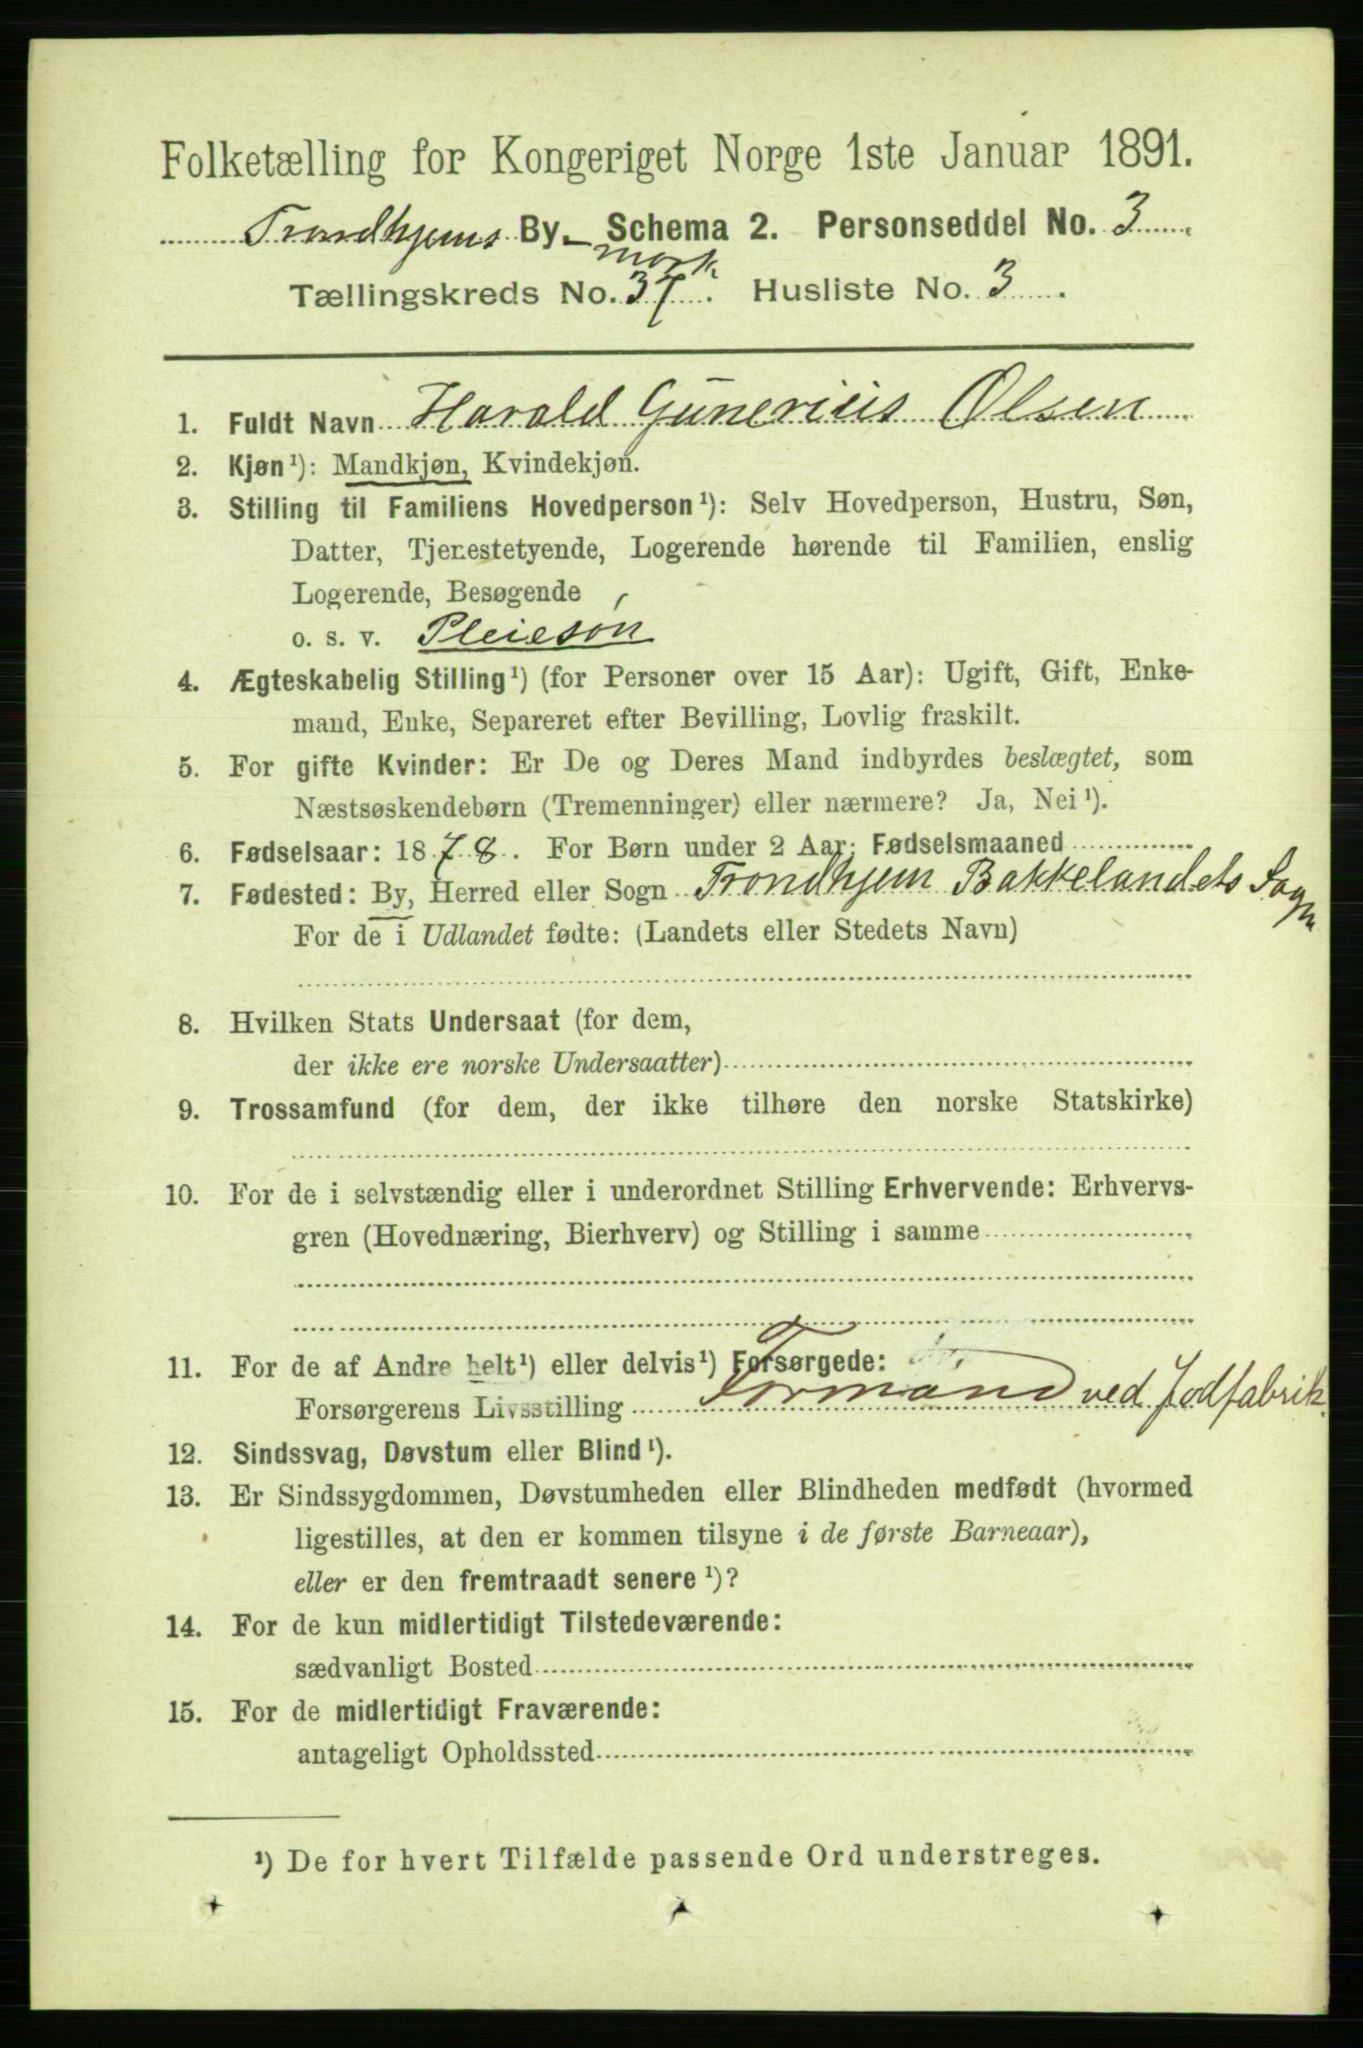 Folketælling for Kongeriget Norge 1ste Januar 1891.
Trondhjems By- Schema 2. Personseddel No. 3
mark
Tællingskreds No. 37. Husliste No. 3.
1. Fuldt Navn Harald Gunerius Olsen
2. Kjøn ¹): Mandkjøn, Kvindekjøn.
3. Stilling til Familiens Hovedperson ¹): Selv Hovedperson, Hustru, Søn,
Datter, Tjenestetyende, Logerende hørende til Familien, enslig
Logerende, Besøgende
o. s. v. Pleiesøn
4. Ægteskabelig Stilling ¹) (for Personer over 15 Aar): Ugift, Gift, Enke-
mand, Enke, Separeret efter Bevilling, Lovlig fraskilt.
5. For gifte Kvinder: Er De og Deres Mand indbyrdes beslægtet, som
Næstsøskendebørn (Tremenninger) eller nærmere? Ja, Nei ¹).
6. Fødselsaar: 1878. For Børn under 2 Aar: Fødselsmaaned
7. Fødested: By, Herred eller Sogn Trondhjem Bakkelandets Sogn
For de i Udlandet fødte: (Landets eller Stedets Navn)
8. Hvilken Stats Undersaat (for dem,
der ikke ere norske Undersaatter)
9. Trossamfund (for dem, der ikke tilhøre den norske Statskirke)
10. For de i selvstændig eller i underordnet Stilling Erhvervende: Erhvervs-
gren (Hovednæring, Bierhverv) og Stilling i samme
11. For de af Andre helt ¹) eller delvis ¹) Forsørgede:
Forsørgerens Livsstilling Formand ved Jodfabrik.
12. Sindssvag, Døvstum eller Blind ¹).
13. Er Sindssygdommen, Døvstumheden eller Blindheden medfødt (hvormed
ligestilles, at den er kommen tilsyne i de første Barneaar),
eller er den fremtraadt senere ¹)?
14. For de kun midlertidigt Tilstedeværende:
sædvanligt Bosted
15. For de midlertidigt Fraværende:
antageligt Opholdssted
¹) De for hvert Tilfælde passende Ord understreges.